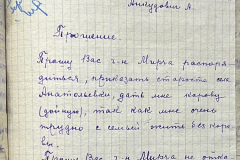 Анкудович А.
Прошение.
Прошу Вас г-н Мирза распоря-
диться, приказать старосте села
Анатольевки, дать мне корову
(дойную), так как мне очень
трудно с семьей жить без коро-
вы.
Прошу Вас г-н Мирза не отка-